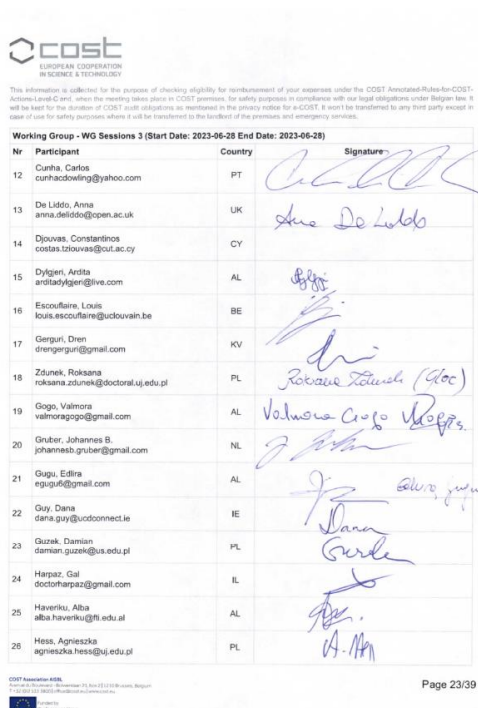 cost
EUROPEAN COOPERATION
IN SCIENCE & TECHNOLOGY
This information is collected for the purpose of checking eligibility for reimbursement of your expenses under the COST Annotated-Rules-for-COST-
Actions-Level-C and, when the meeting takes place in COST premises, for safety purposes in compliance with our legal obligations under Belgian law. It
will be kept for the duration of COST audit obligations as mentioned in the privacy notice for e-COST. It won't be transferred to any third party except in
case of use for safety purposes where it will be transferred to the landlord of the premises and emergency services.
Working Group - WG Sessions 3 (Start Date: 2023-06-28 End Date: 2023-06-28)
Nr Participant Country Signature
12 Cunha, Carlos PT
cunhacdowling@yahoo.com
13 De Liddo, Anna UK
anna.deliddo@open.ac.uk
14 Djouvas, Constantinos CY
costas.tziouvas@cut.ac.cy
15 Dylgjeri, Ardita AL
arditadylgjeri@live.com
16 Escouflaire, Louis BE
louis.escouflaire@uclouvain.be
17 Gerguri, Dren KV
drengerguri@gmail.com
18 Zdunek, Roksana PL
roksana.zdunek@doctoral.uj.edu.pl
19 Gogo, Valmora AL Valmora Gogo
valmoragogo@gmail.com
20 Gruber, Johannes B. NL
johannesb.gruber@gmail.com
21 Gugu, Edlira AL
egugu6@gmail.com
22 Guy, Dana IE Dana
dana.guy@ucdconnect.ie
23 Guzek, Damian PL
damian.guzek@us.edu.pl
24 Harpaz, Gal IL
doctorharpaz@gmail.com
25 Haveriku, Alba AL
alba.haveriku@fti.edu.al
26 Hess, Agnieszka PL
agnieszka.hess@uj.edu.pl
COST Association AISBL
Page 23/39
Funded by